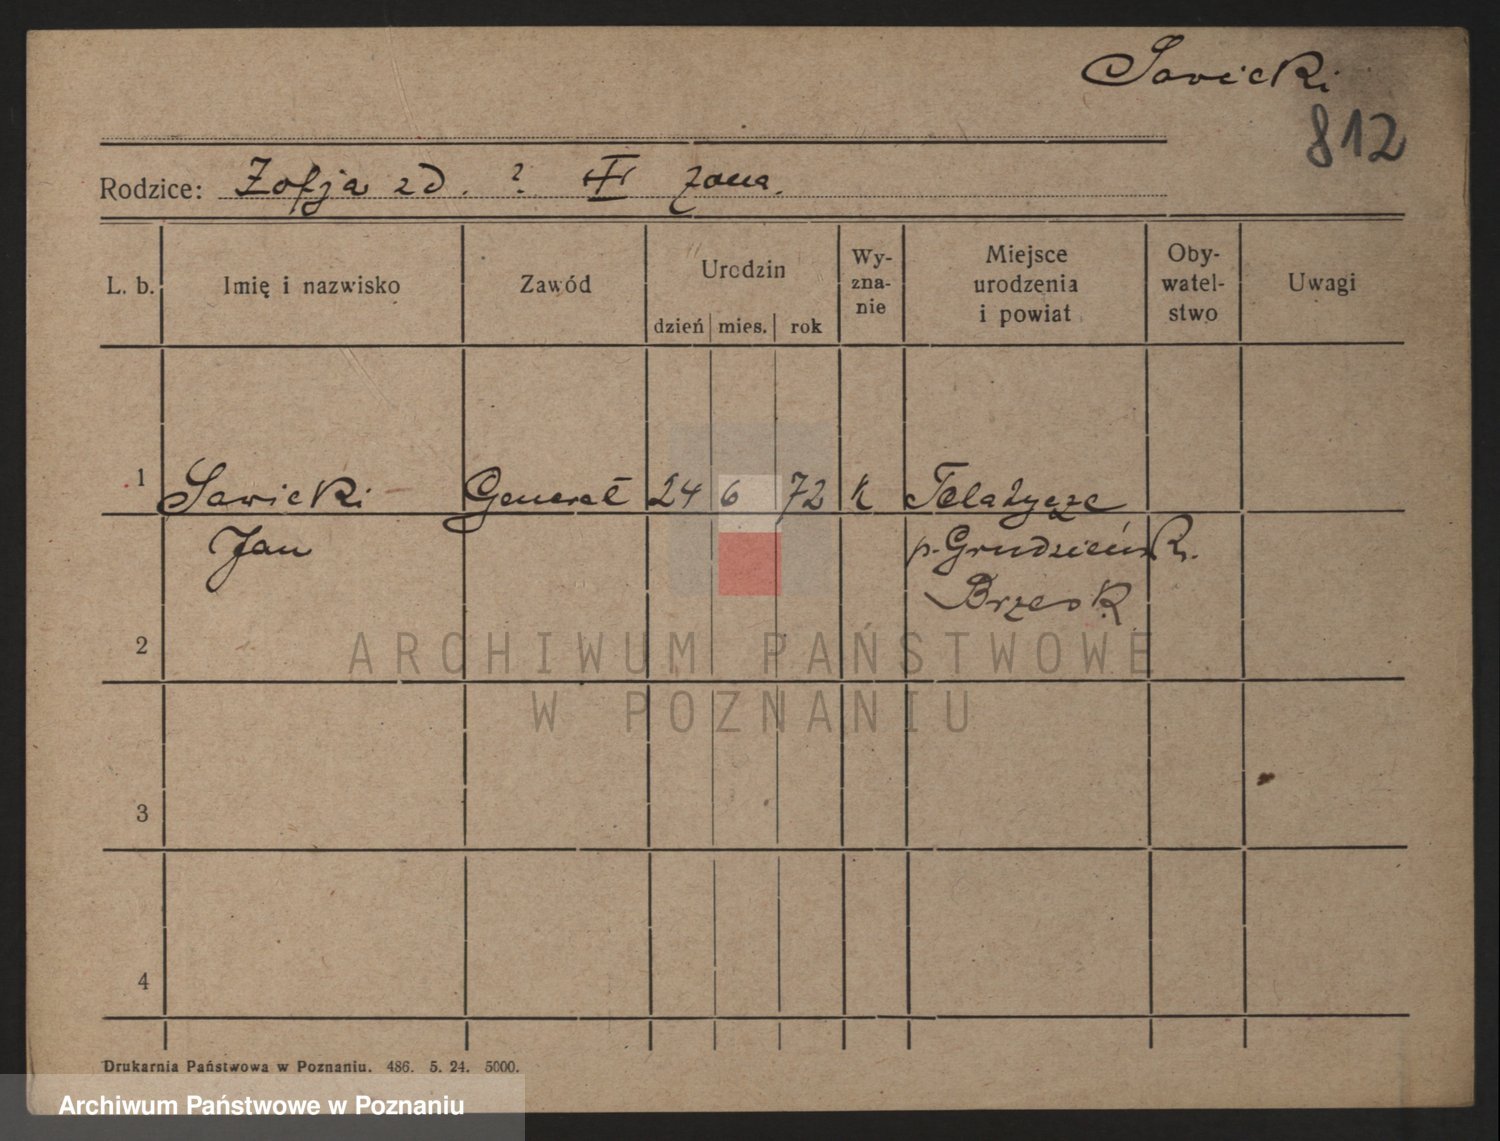 Sawicki
812
Rodzice: Zofja zd. ? II żona.
L. b. Imię i nazwisko Zawód Urodzin Wy-zna-nie Miejsce urodzenia i powiat Oby-watel-stwo Uwagi
dzień mies. rok
1 Sawicki Generał 24 6 72 k Telatycze
Jan p. Grudzień R.
Brzesk
2
ARCHIWUM PAŃSTWOWE
W POZNANIU
3
4
Drukarnia Państwowa w Poznaniu. 486. 5. 24. 5000.
Archiwum Państwowe w Poznaniu